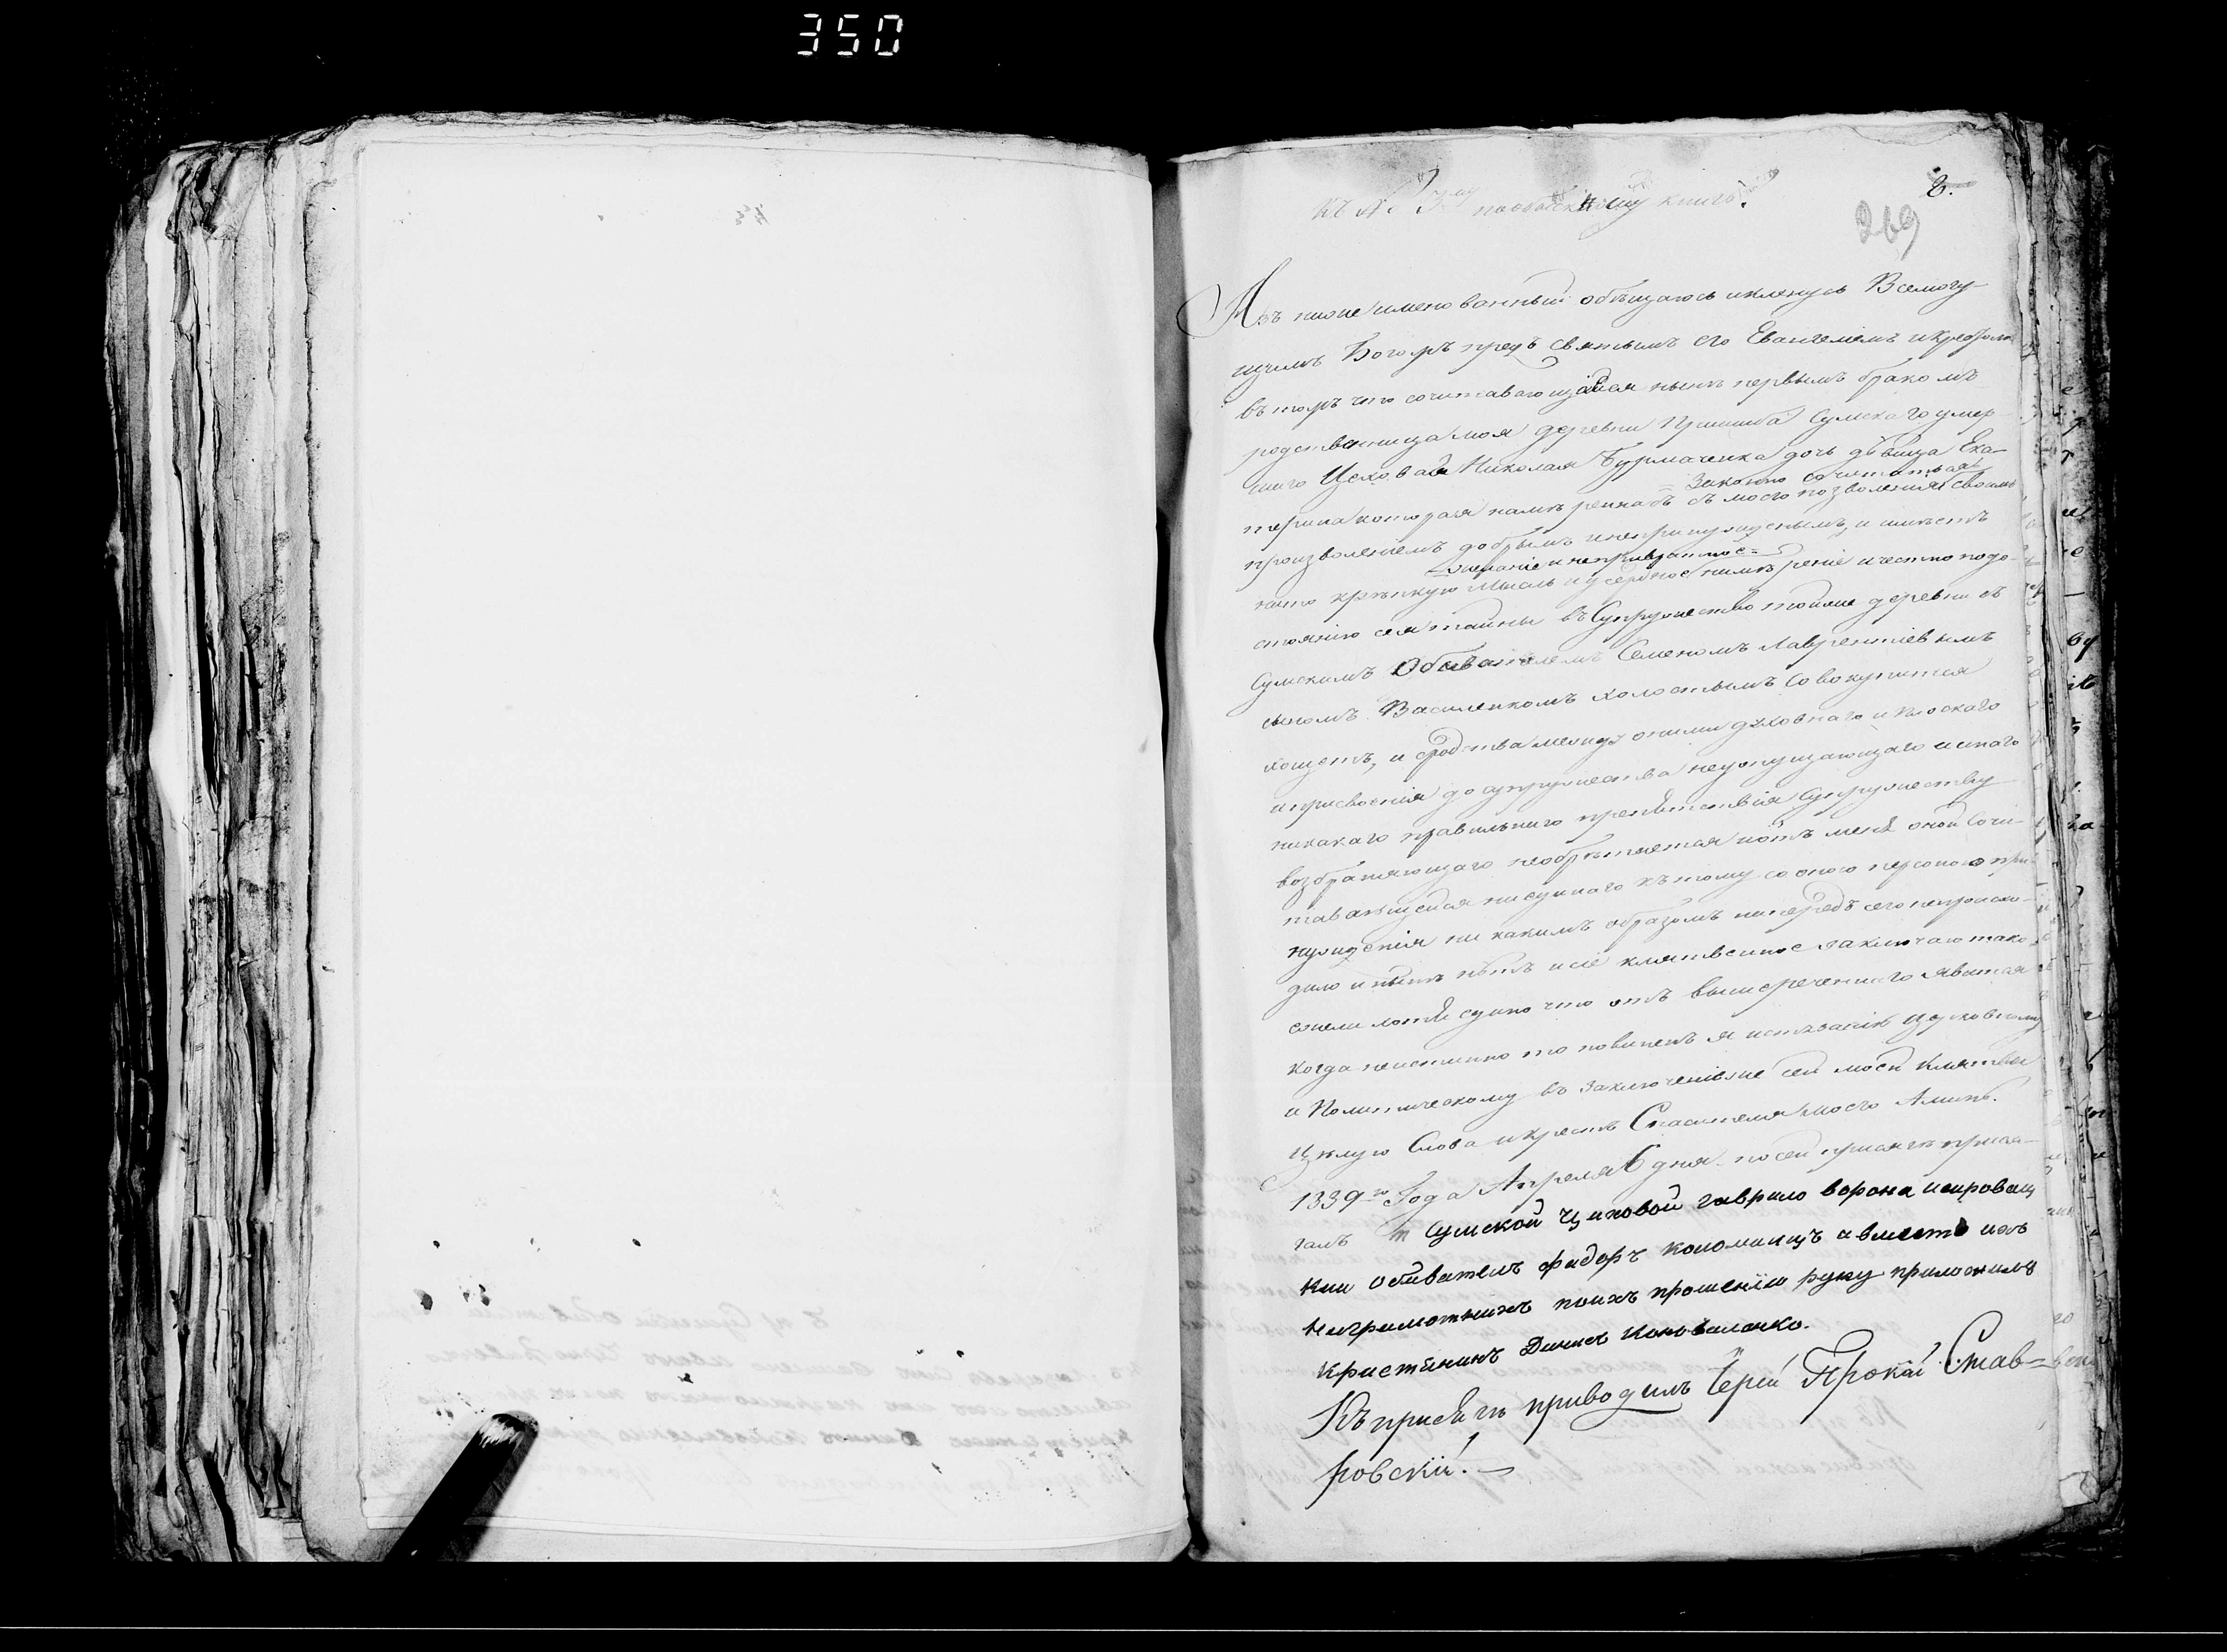 350
къ № 3му пообыскному книгѣ.
8.
269
Азъ нижеименованный обѣщаюсь и кленусь Всемогу-
щимъ Богомъ предъ святымъ его Евангелиемъ и крестомъ
въ томъ что сочитавающаяся нынѣ первымъ бракомъ
родственица моя деревни Пришиба Сумскаго умер-
шаго Цеховаго Николая Бурмаченка дочь дѣвица Ека-
Законно сочитатся
терина которая намѣренна съ моего позволения своимъ
произволениемъ добрымъ и непринужденымъ, и имѣетъ
желание и непривратное
на то крѣпкую мысль и усердное намѣрение и честно по до-
стоянию сея тайны въ Супружество тоиже деревни съ
Сумскимъ Обивателемъ Семеномъ Лаврентиевымъ
сыномъ Василенкомъ холостымъ Совокупится
хощетъ, и сродства между оними духовнаго и плоскаго
и присвоения до супружества недопущающаго и инаго
никакаго правильнаго препятствия Супружеству
возбраняющаго необрѣтается и отъ меня оной Сочи-
тавающейся никуплаго къ тому со оною персоною при-
нуждения ни какимъ образомъ напередъ сего непроисхо-
дило и нынѣ нѣтъ и сие клятвенное заключаю тако
ежели хотя едино что отъ вышереченнаго явится
когда неистинно то повиненъ я истязанию церковному
и Политическому въ заключение же сей моей клятвы
Цѣлую Слова и крестъ Спасителя моего Аминь.
1839го Года Апреля 6 дня по сей присягѣ прися-
галъ Сумской Цеховой гаврило ворона
кии обиватель фидоръ коломиицъ авместо ихъ
неграмотнихъ поихъ прошению руку приложилъ
кристянинъ Динисъ Коноваленко.
Къ присягѣ приводилъ Іерей Прокій Став-
ровский.